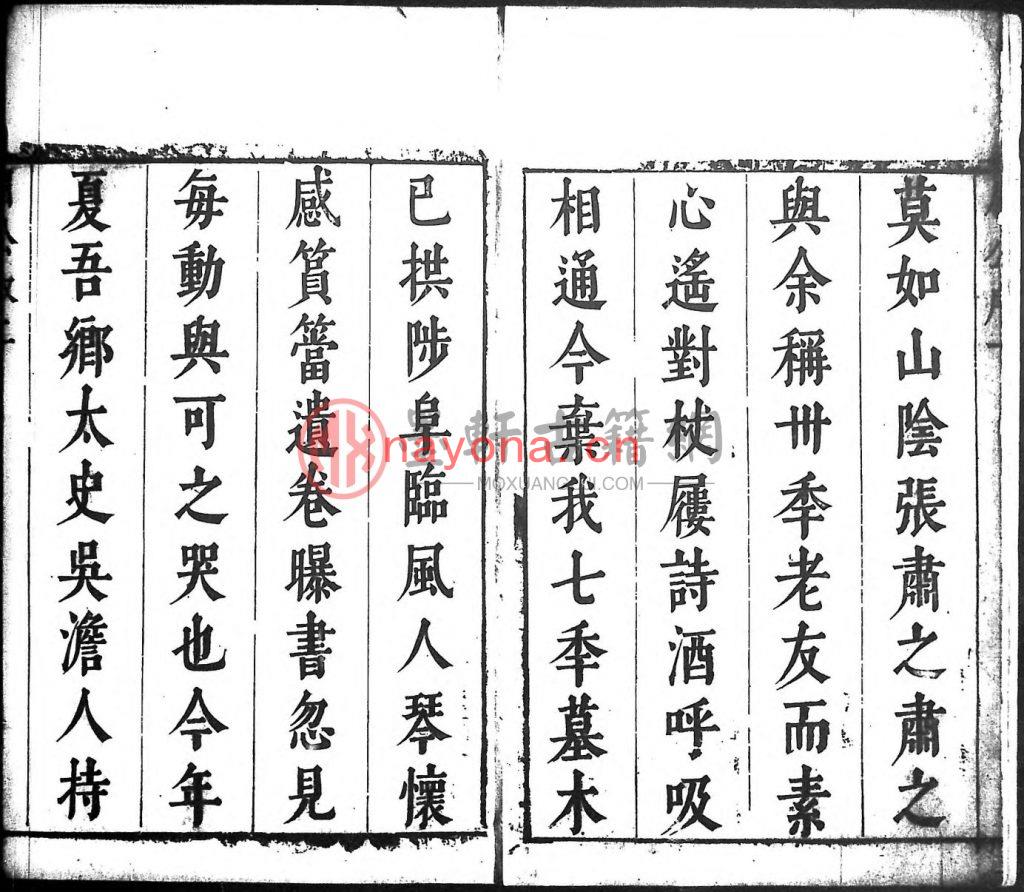 莫如山陰張肅之肅之
與余稱卅季老友而素
心遙對杖屨詩酒呼吸
相通今棄我七季墓木
已拱陟阜臨風人琴懷
感筼簹遺卷曝書忽見
每動與可之哭也今年
夏吾鄉太史吳澹人持
nayona.cn
墨軒古籍網